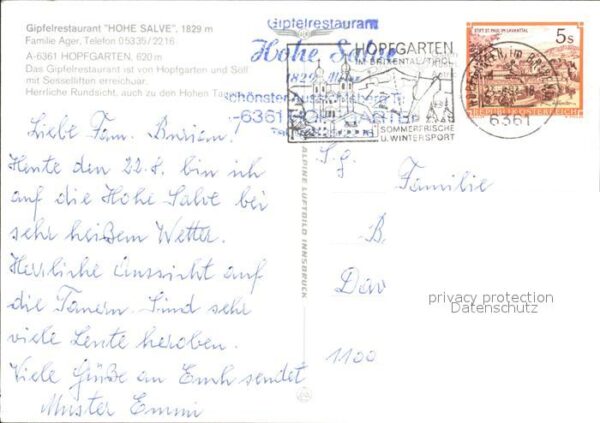 Gipfelrestaurant "HOHE SALVE", 1829 m
Familie Ager, Telefon 05335/2216
A-6361 HOPFGARTEN, 620 m
Das Gipfelrestaurant ist von Hopfgarten und Söll
mit Sesselliften erreichbar.
Herrliche Rundsicht, auch zu den Hohen
Gipfelrestaurant
Hohe Salve
1829 Meter
schönster Aussichtsberg
-6361 HOPFGARTEN
HOPFGARTEN
IM BRIXENTAL/TIROL
SOMMERFRISCHE
U. WINTERSPORT
6361
STIFT ST. PAUL IM LAVANTTAL
5s
REPUBLIK ÖSTERREICH
Liebe Fam. Burian!
Heute den 22.8. bin ich
auf die Hohe Salve bei
sehr heißem Wetter.
Herrliche Aussicht auf
die Tauern. Sind sehr
viele Leute heroben.
Viele Grüße an Euch sendet
Mutter Emmi
ALPINE LUFTBILD INNSBRUCK
S.g.
Familie
B.
Dav
1100
privacy protection
Datenschutz